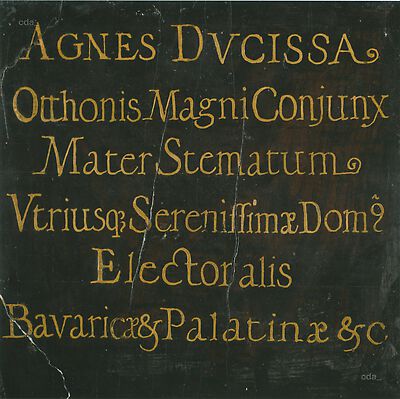 cda_
AGNES DVCISSA
Otthonis Magni Conjunx
Mater Stematum
Vtriusqȝ Sereniſſimæ Domꝰ
Electoralis
Bavaricæ & Palatinæ &c
cda_